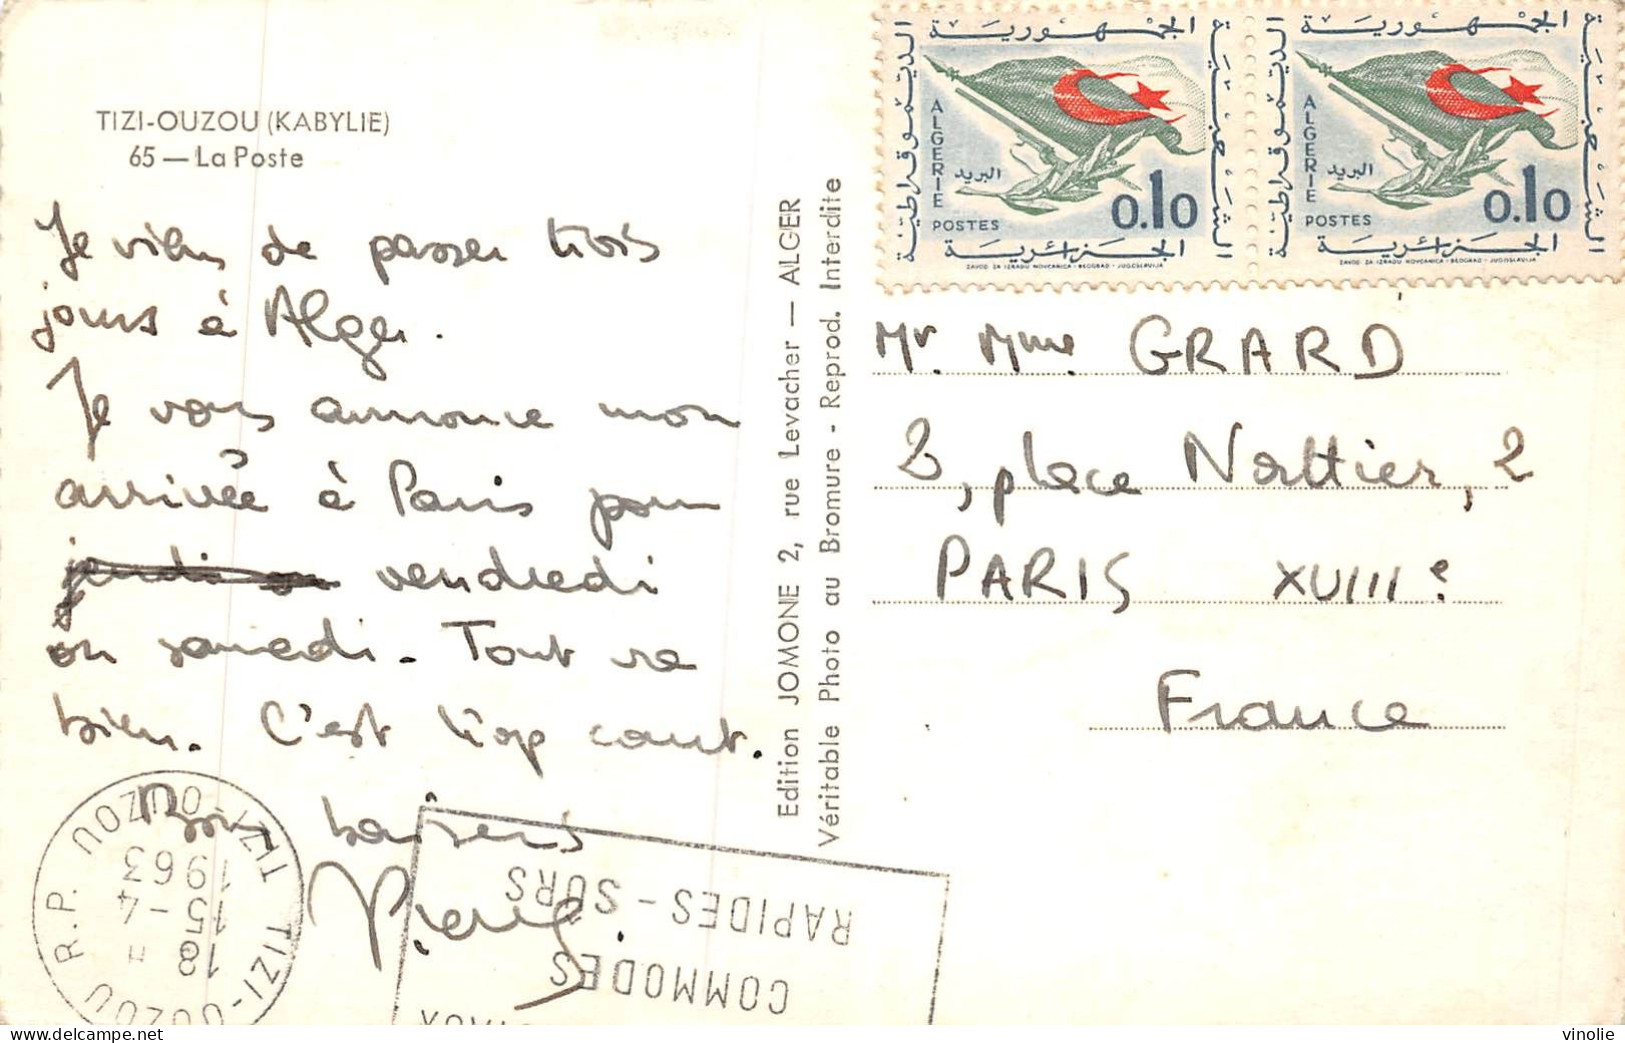 TIZI-OUZOU (KABYLIE)
65 — La Poste
Je viens de passer trois
jours à Alger.
Je vous annonce mon
arrivée à Paris pour
jeudi ou vendredi
ou samedi. Tout va
bien. C'est trop court.
Bons baisers
Edition JOMONE 2, rue Levacher — ALGER
Véritable Photo au Bromure - Reprod. Interdite
الجمهورية
الديمقراطية
الشعبية
الجزائرية
ALGERIE
البريد
POSTES
0.10
ZAVOD ZA IZRADU NOVCANICA - BEOGRAD - JUGOSLAVIJA
الجمهورية
الديمقراطية
الشعبية
الجزائرية
ALGERIE
البريد
POSTES
0.10
ZAVOD ZA IZRADU NOVCANICA - BEOGRAD - JUGOSLAVIJA
Mr. Mme. GRARD
3, place Nattier, 2
PARIS XVIIIe
France
TIZI-OUZOU R.P. TIZI-OUZOU
18H
15-4
1963
COMMODES
RAPIDES - SURS
vinolie